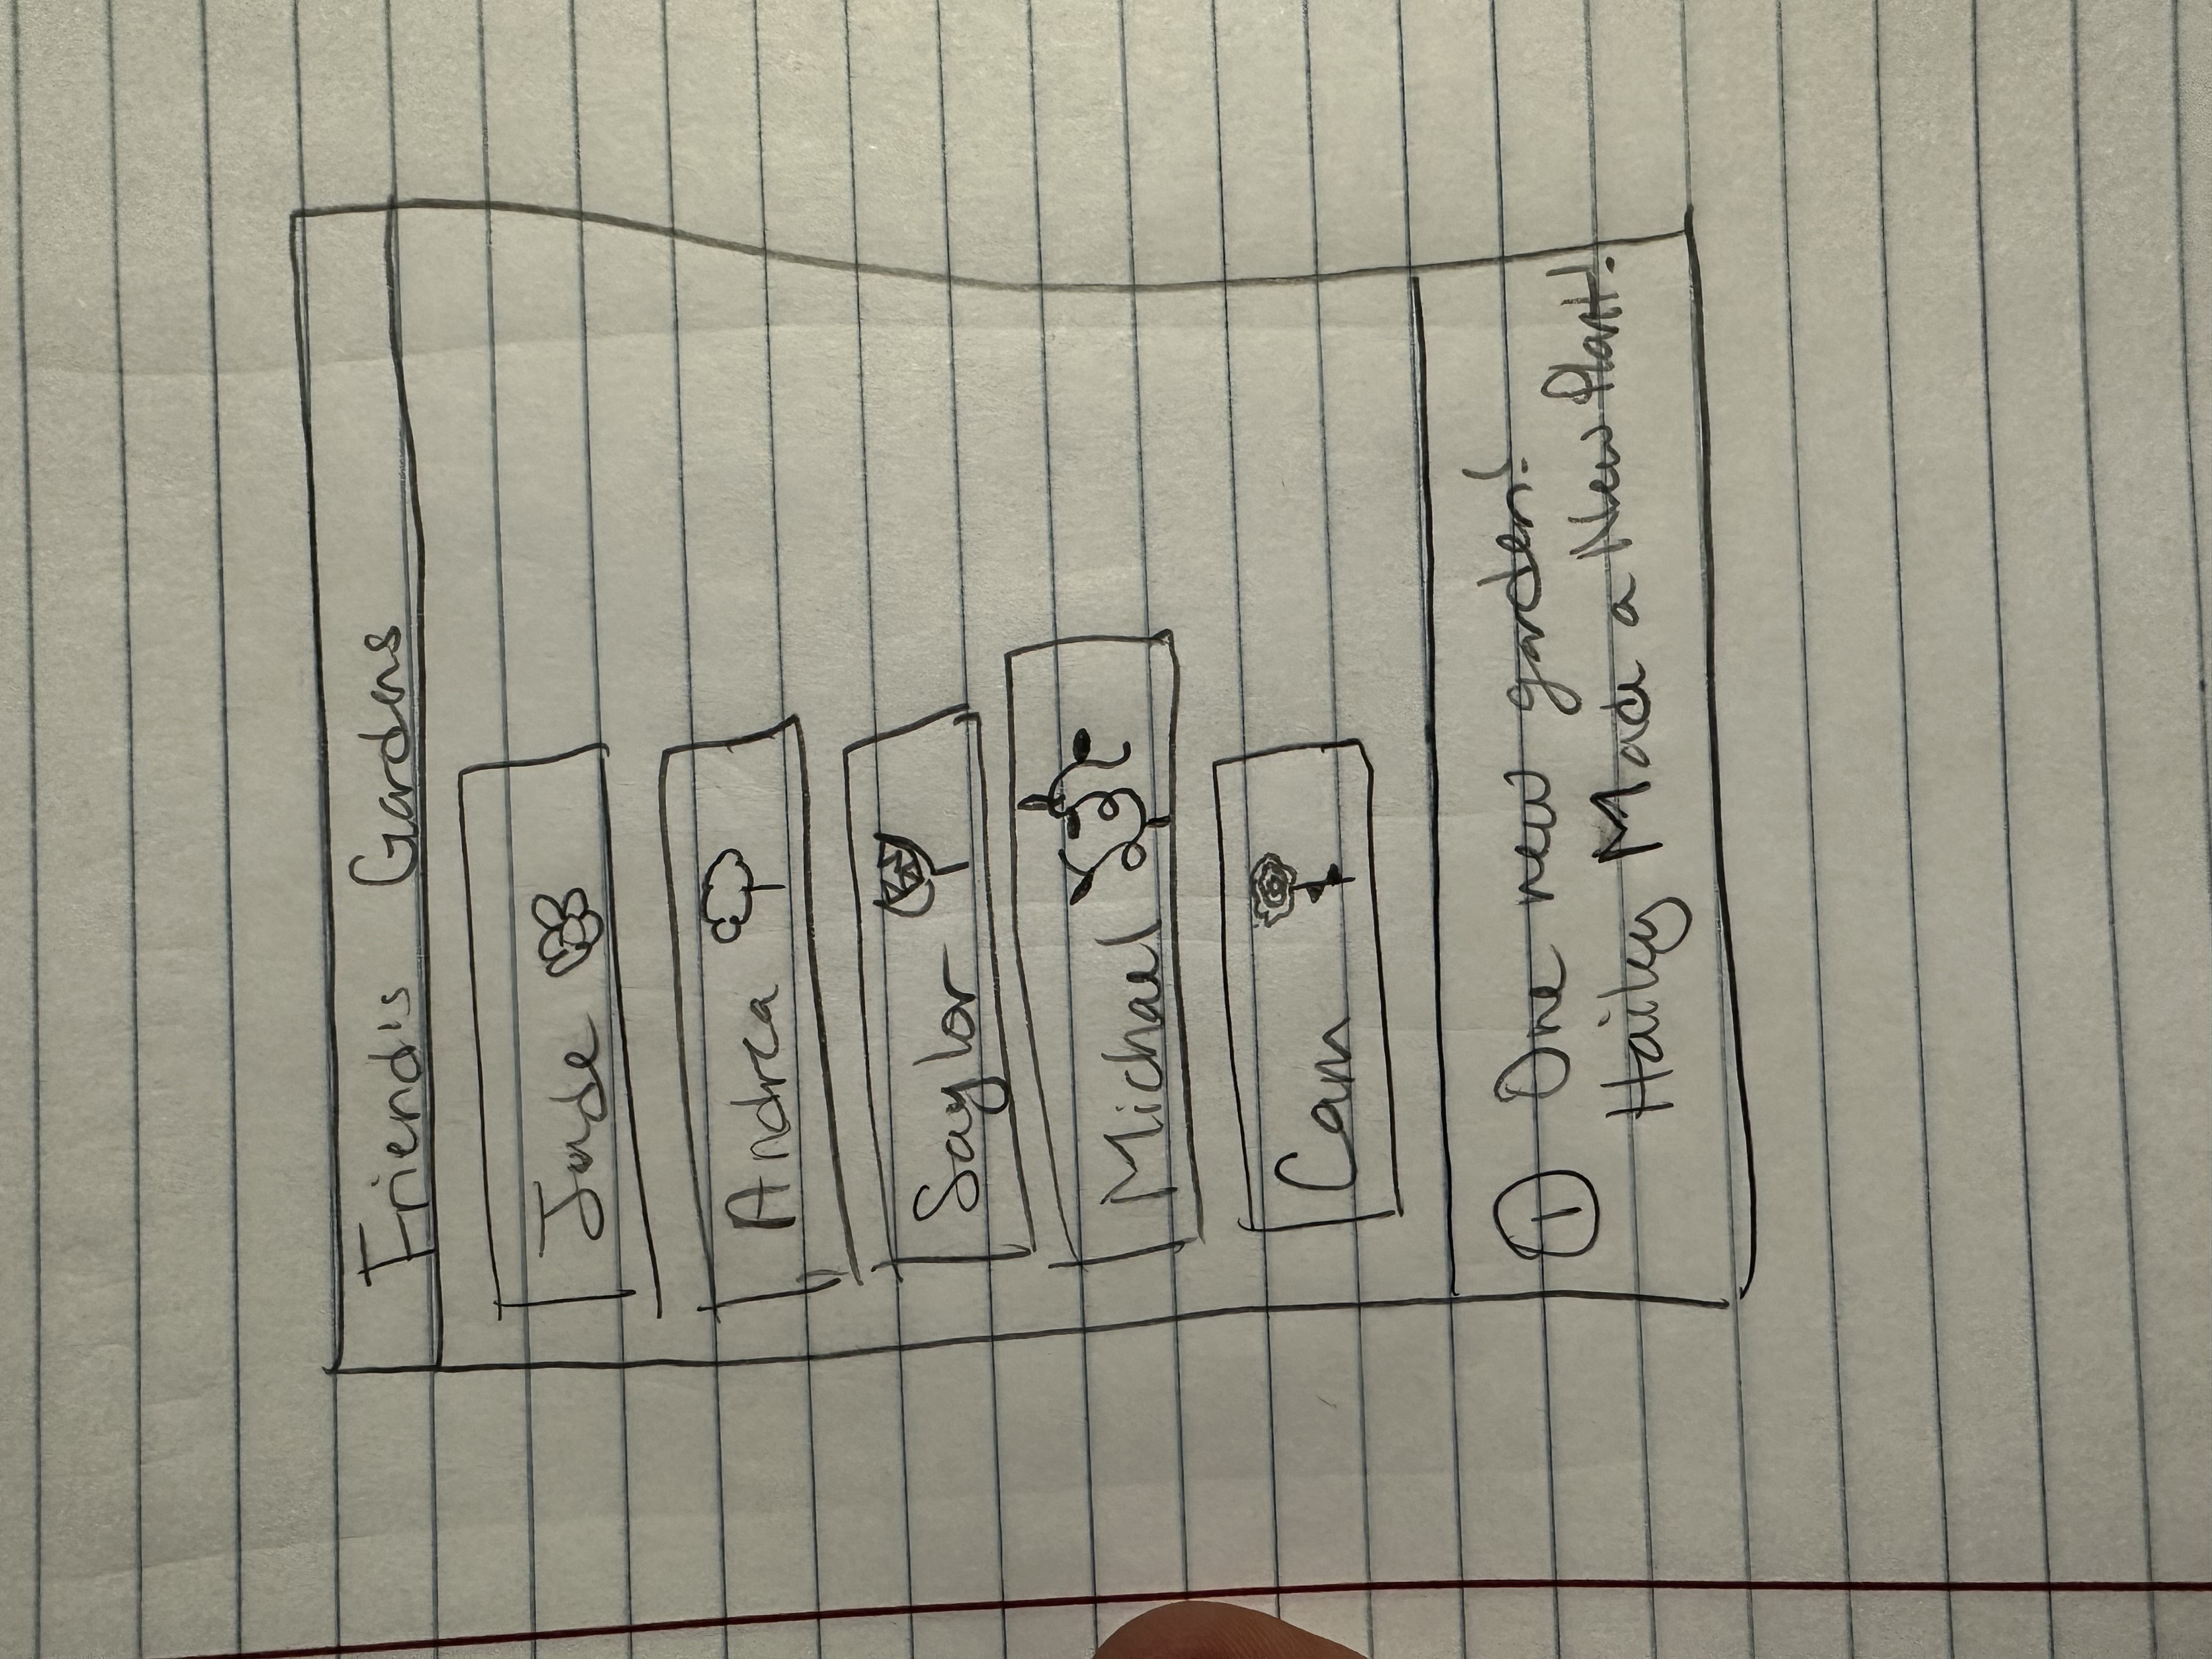 Friend's Gardens
Jude
Andrea
Saylor
Michael
Cam
1 One new garden!
Hailey Made a New Plant!